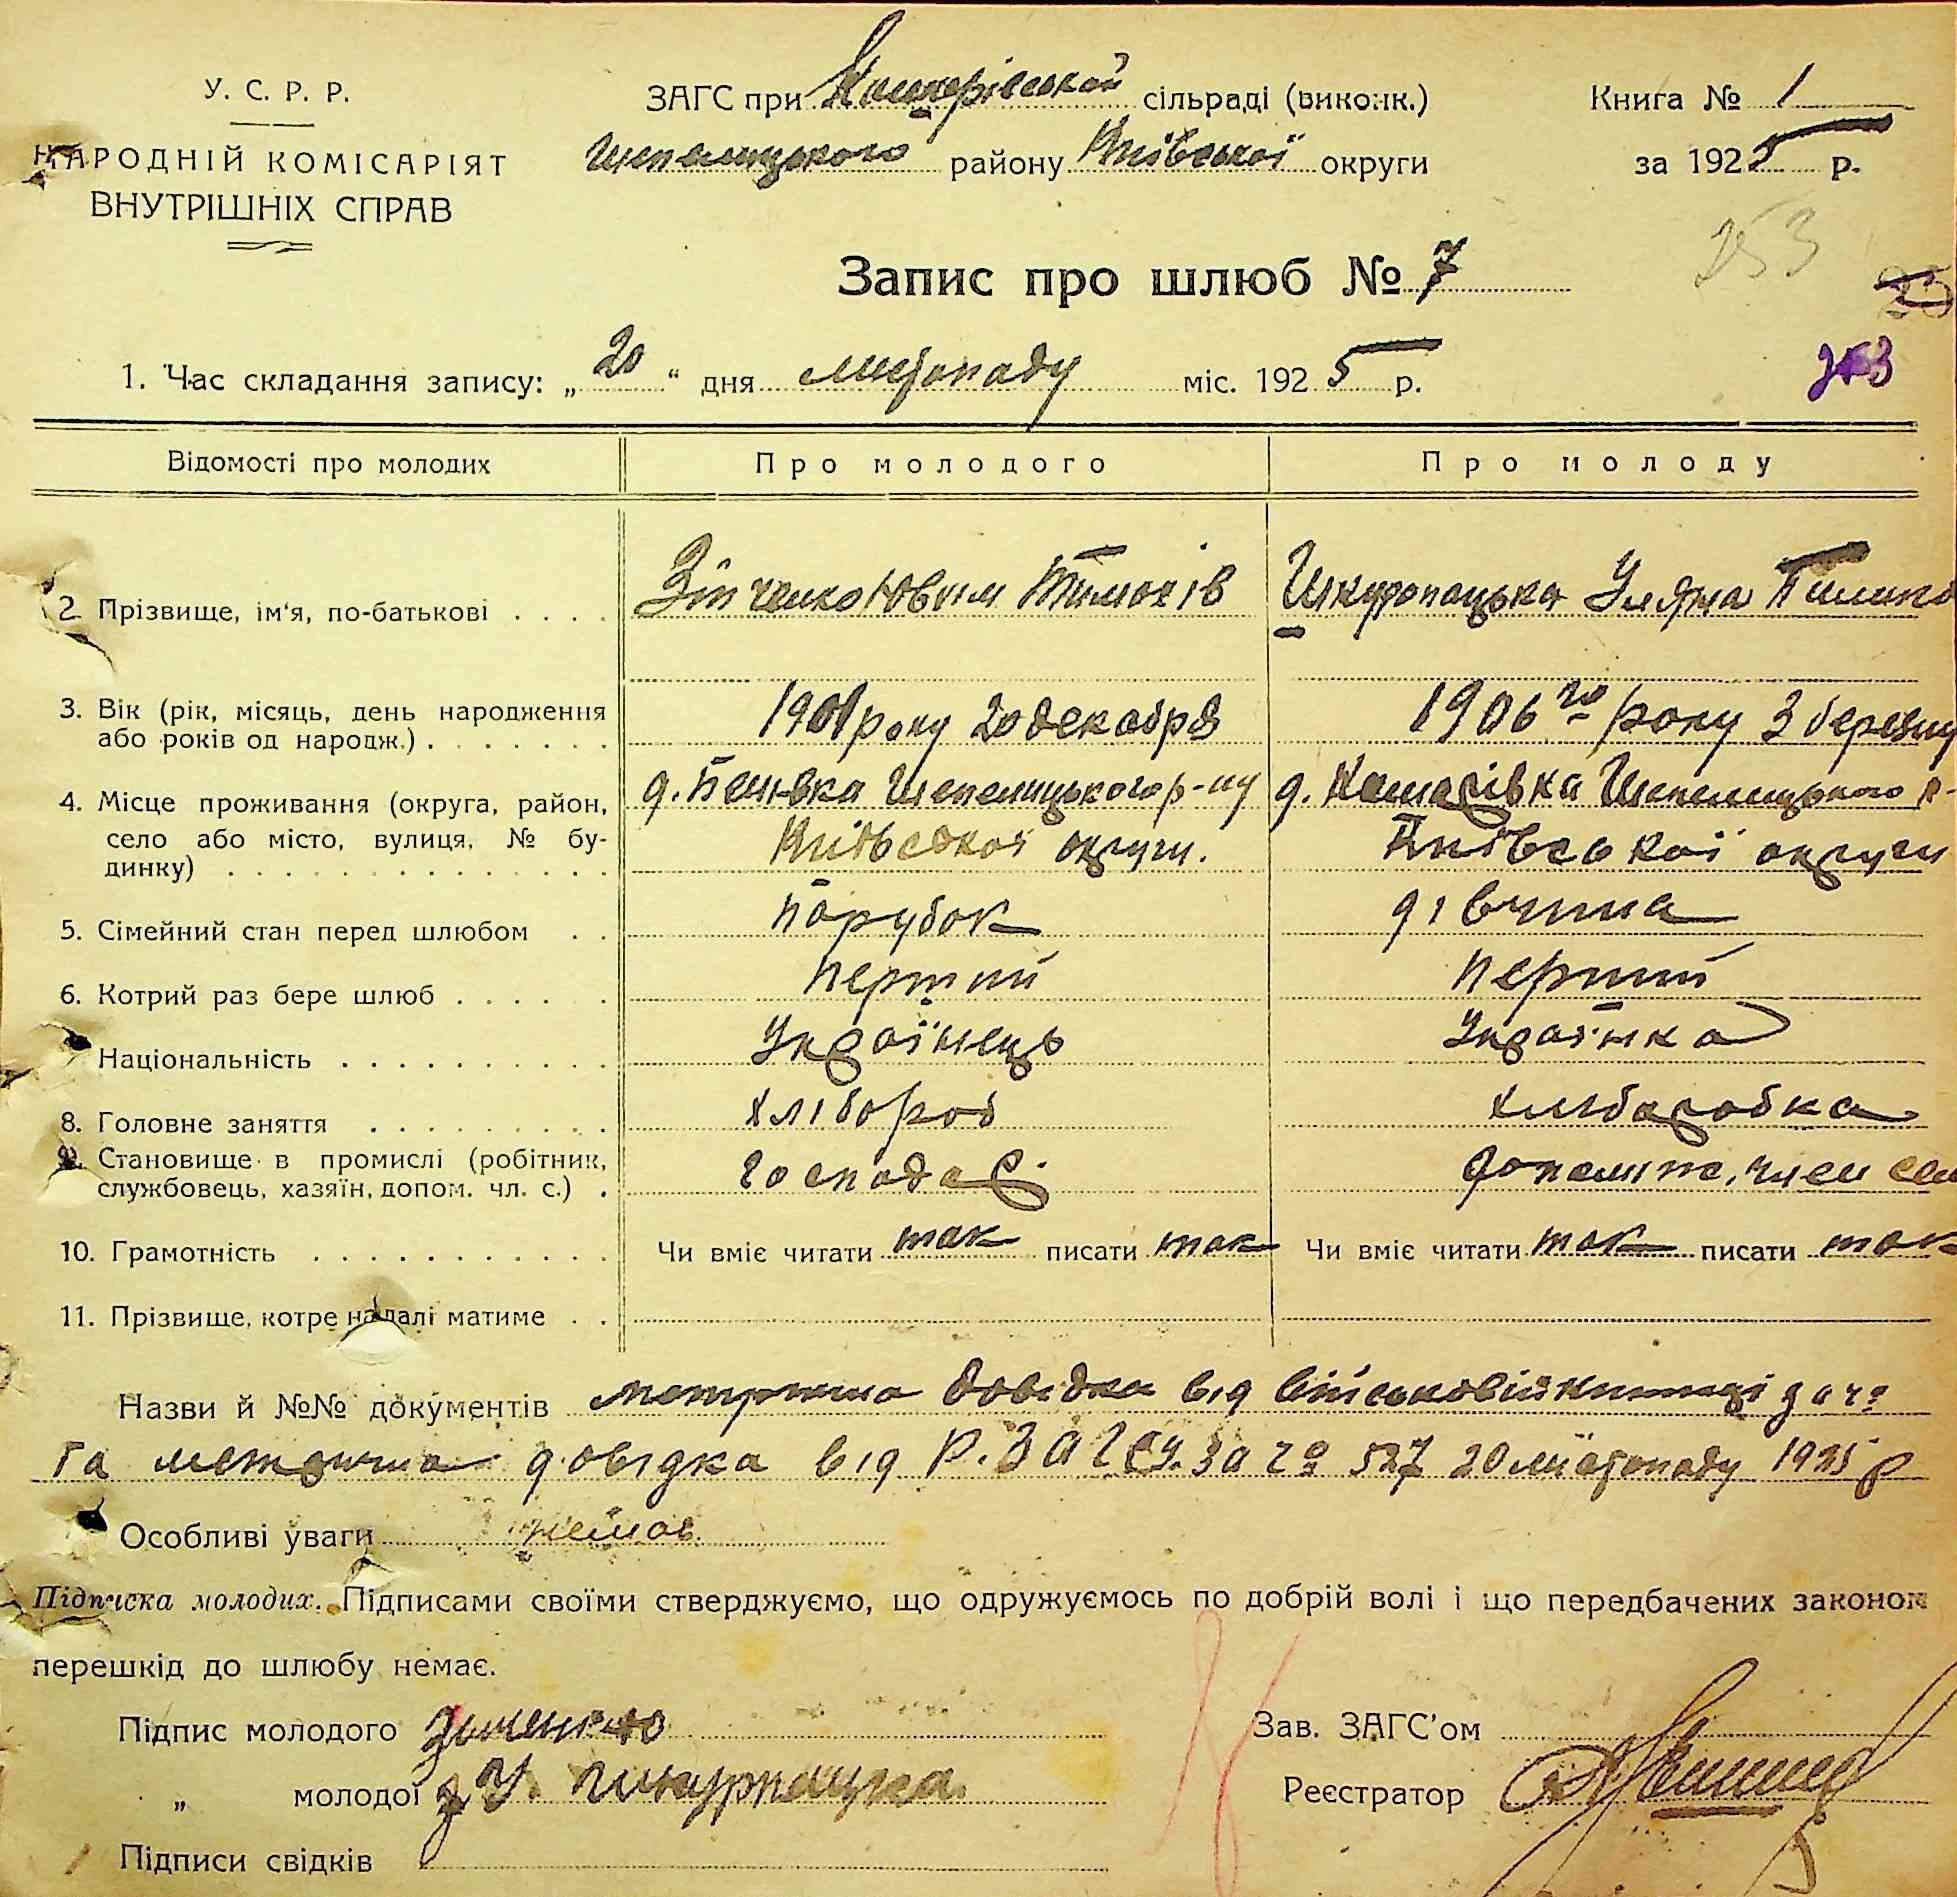 У. С. Р. Р.
НАРОДНІЙ КОМІСАРІЯТ
ВНУТРІШНІХ СПРАВ
ЗАГС при сільраді (виконк.)
Шепелицького району Київської округи
Книга № 1
за 1925 р.
253
Запис про шлюб № 7
253
1. Час складання запису: „20“ дня листопаду міс. 1925 р.
Відомості про молодих Про молодого Про молоду
2. Прізвище, ім'я, по-батькові . . . . Зінченко Ювхим Тимохів Шкуропацька Уляна Пилипо
3. Вік (рік, місяць, день народження
або років од народж.) . . . . . . . 1901 року 20 декабря 1906 го року 3 березня
4. Місце проживання (округа, район,
село або місто, вулиця, № бу-
динку) . . . . . . . . . . . . . .
д. Бенівка Шепелицького р-ну д. Шепелицького р-
Київської округи. Київської округи
5. Сімейний стан перед шлюбом . . парубок дівчина
6. Котрий раз бере шлюб . . . . . . перший перший
Національність . . . . . . . . . . Українець Українка
8. Головне заняття . . . . . . . . . хлібороб хліборобка
9. Становище в промислі (робітник,
службовець, хазяїн, допом. чл. с.) . господар. член сем
10. Грамотність . . . . . . . . . . . Чи вміє читати так писати так Чи вміє читати так писати так
11. Прізвище, котре надалі матиме . .
Назви й №№ документів метрична довідка від за ч:
та метрична довідка від Р.ЗАГСу за ч: 527 20 листопаду 1925 р
Особливі уваги немає.
Підписка молодих. Підписами своїми стверджуємо, що одружуємось по добрій волі і що передбачених законом
перешкід до шлюбу немає.
Підпис молодого Зінченко
„ молодої У.
Зав. ЗАГС'ом
Реєстратор
Підписи свідків